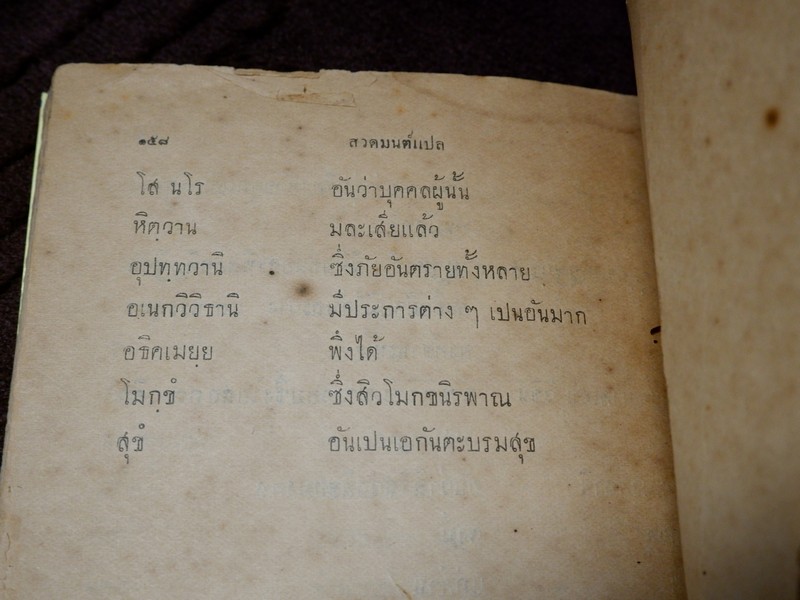 ๑๕๘ สวดมนต์แปล
โส นโร อันว่าบุคคลผู้นั้น
หิตฺวาน มละเสียแล้ว
อุปทฺทวานิ ซึ่งภัยอันตรายทั้งหลาย
อเนกวิวิธานิ มีประการต่าง ๆ เปนอันมาก
อธิคเมยฺย พึงได้
โมกฺขํ ซึ่งสิวโมกขนิรพาณ
สุขํ อันเปนเอกันตะบรมสุข